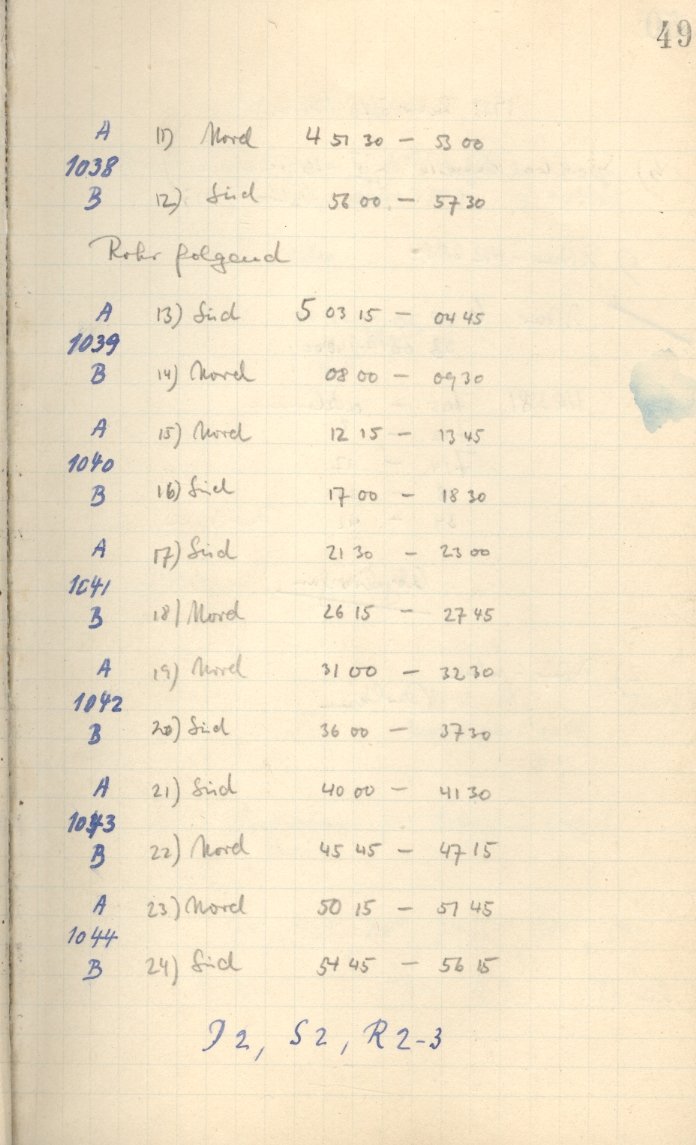 49
A 11) Nord 4 51 30 – 53 00
1038
B 12) Süd 56 00 – 57 30
Rohr folgend
A 13) Süd 5 03 15 – 04 45
1039
B 14) Nord 08 00 – 09 30
A 15) Nord 12 15 – 13 45
1040
B 16) Süd 17 00 – 18 30
A 17) Süd 21 30 – 23 00
1041
B 18) Nord 26 15 – 27 45
A 19) Nord 31 00 – 32 30
1042
B 20) Süd 36 00 – 37 30
A 21) Süd 40 00 – 41 30
1043
B 22) Nord 45 45 – 47 15
A 23) Nord 50 15 – 51 45
1044
B 24) Süd 54 45 – 56 15
D2, S2, R2-3